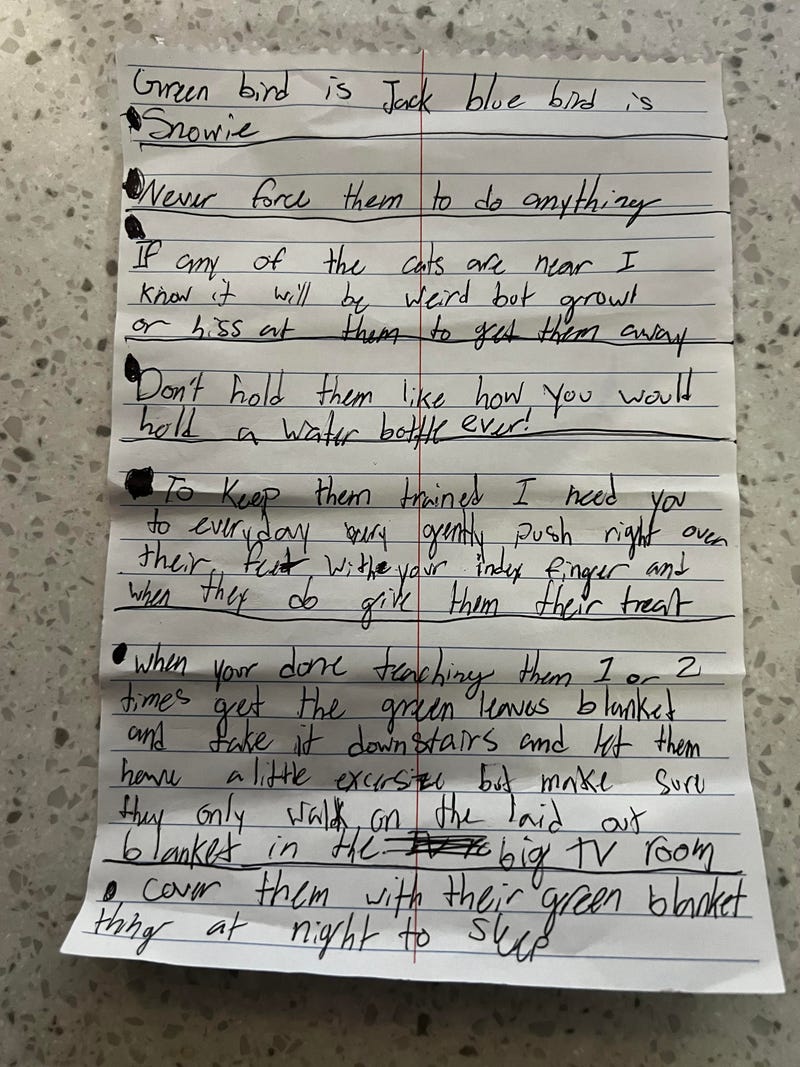 Green bird is Jack blue bird is
Snowie
Never force them to do anything
If any of the cats are near I
know it will be weird but growl
or hiss at them to get them away
Don't hold them like how you would
hold a water bottle ever!
To Keep them trained I need you
to everyday very gently push right over
their feet with your index finger and
when they do give them their treat
• when your done teaching them 1 or 2
times get the green leaves blanket
and take it downstairs and let them
have a little excersize but make sure
they only walk on the laid out
blanket in the big TV room
• cover them with their green blanket
thing at night to sleep